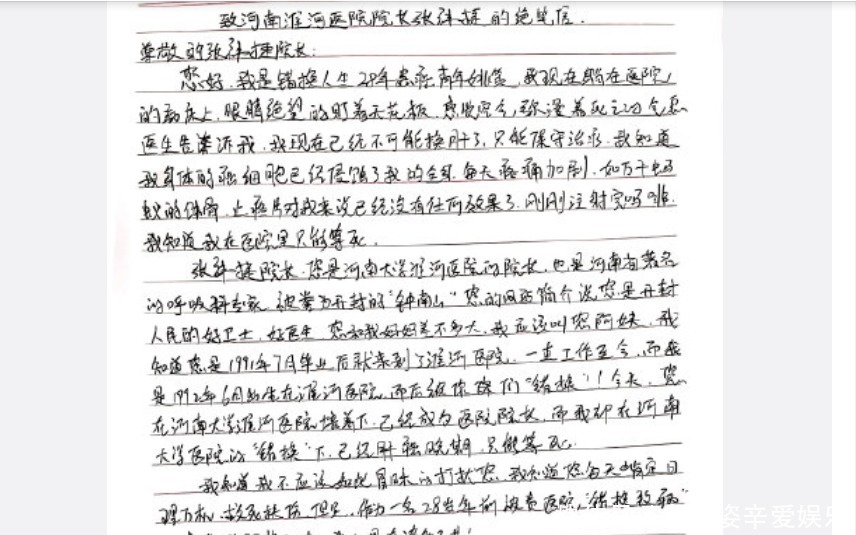 致河南淮河医院院长张祎捷的绝笔信.
尊敬的张祎捷院长:
您好,我是错换人生28年患癌青年姚策,我现在躺在医院
的病床上,眼睛绝望的盯着天花板,感觉空气弥漫着死亡之气息
医生告诉我,我现在已经不可能换肝了,只能保守治疗.我知道
我身体的癌细胞已经侵蚀了我的全身.每天疼痛加剧,如万千蚂
蚁的体降,止疼片对我来说已经没有任何效果了,刚刚注射完吗啡.
我知道我在医院里只能等死.
张祎捷院长,您是河南大学淮河医院的院长,也是河南省著名
的呼吸科专家,被誉为开封的"钟南山"您的网页简介说您是开封
人民的好卫士,好医生,您和我妈妈差不多大,我应该叫您阿姨,我
知道您是1991年7月毕业后就来到了淮河医院.一直工作至今,而我
是1992年6月出生在淮河医院,而后被你院们"错换"!今天,您
在河南大学淮河医院培养下,已经成为医院院长,而我却在河南
大学医院的"错换"下,已经肝癌晚期,只能等死.
我知道我不应该如此冒昧的打扰您,我知道您每天肯定日
理万机,救死扶伤,但是,作为一名28岁年前被贵医院"错换
姿辛爱娱乐